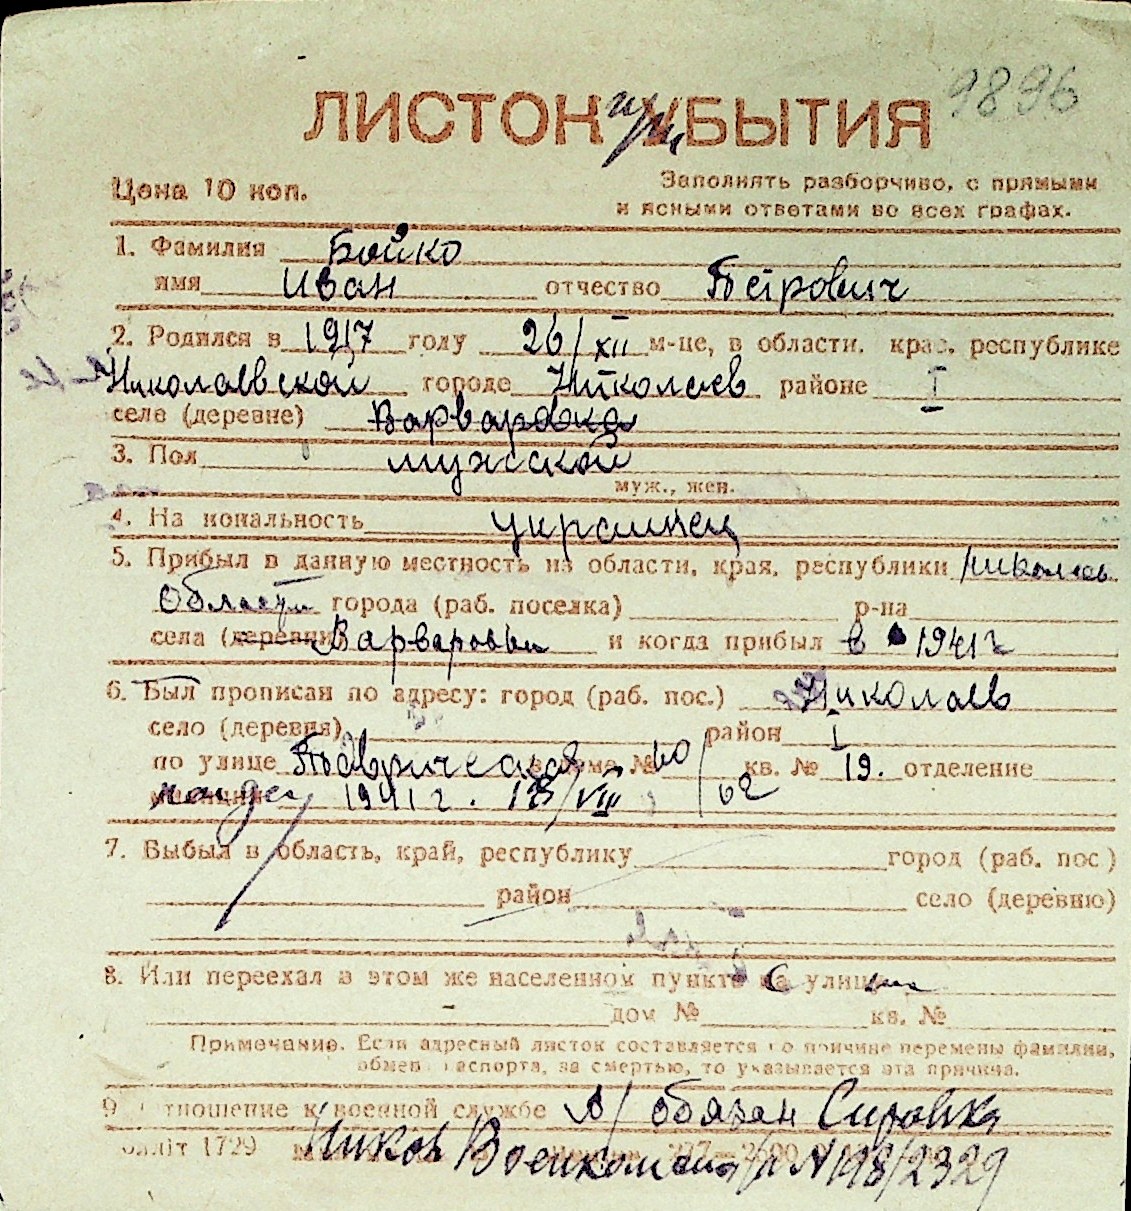 9896
ЛИСТОК при УБЫТИЯ
Цена 10 коп.
Заполнять разборчиво, с прямыми
и ясными ответами во всех графах.
1. Фамилия Бойко
имя Иван отчество Петрович
2. Родился в 1917 году 26/XII м-це, в области, крае, республике
Николаевской городе Николаев районе I
селе (деревне) Варваровка
3. Пол мужской
муж., жен.
4. На иональность украинец
5. Прибыл в данную местность из области, края, республики Николаев
области города (раб. поселка) р-на
села (деревни) Варваровки и когда прибыл в 1941 г
6. Был прописан по адресу: город (раб. пос.) Николаев
село (деревня) район I
по улице в доме № 60 кв. № 19. отделение
1941 г. VIII 62
7. Выбыл в область, край, республику город (раб. пос.)
район село (деревню)
8. Или переехал в этом же населенном пункте с улицы
дом № кв. №
Примечание. Если адресный листок составляется по причине перемены фамилии,
обмен паспорта, за смертью, то указывается эта причина.
9. тношение к военной службе в/обязан
1729 Никол Военкомат N 198/2329